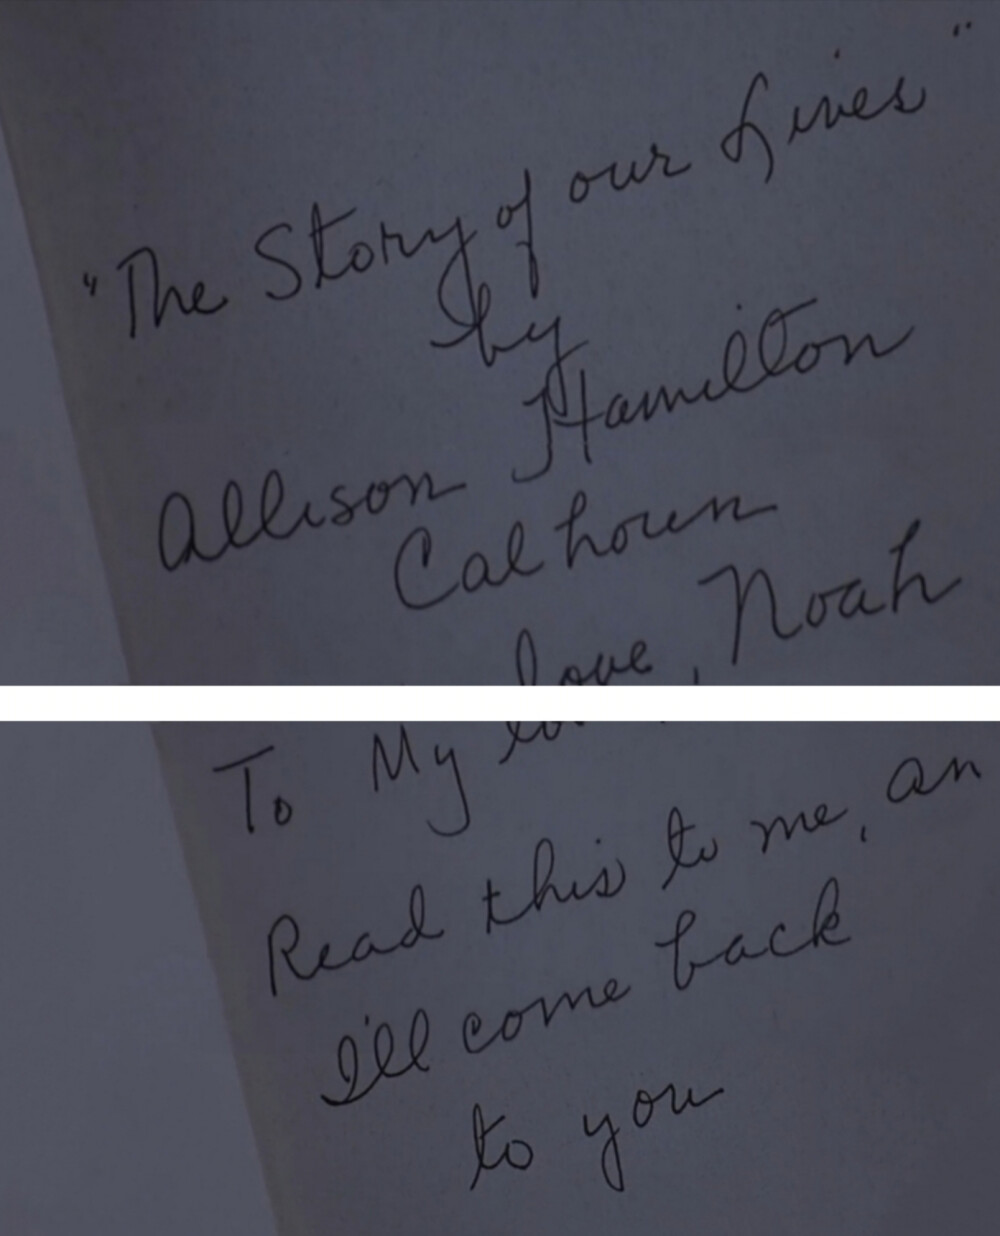 "The Story of our Lives"
by
Allison Hamilton
Calhoun
love, Noah
To My
Read this to me, an
I'll come back
to you